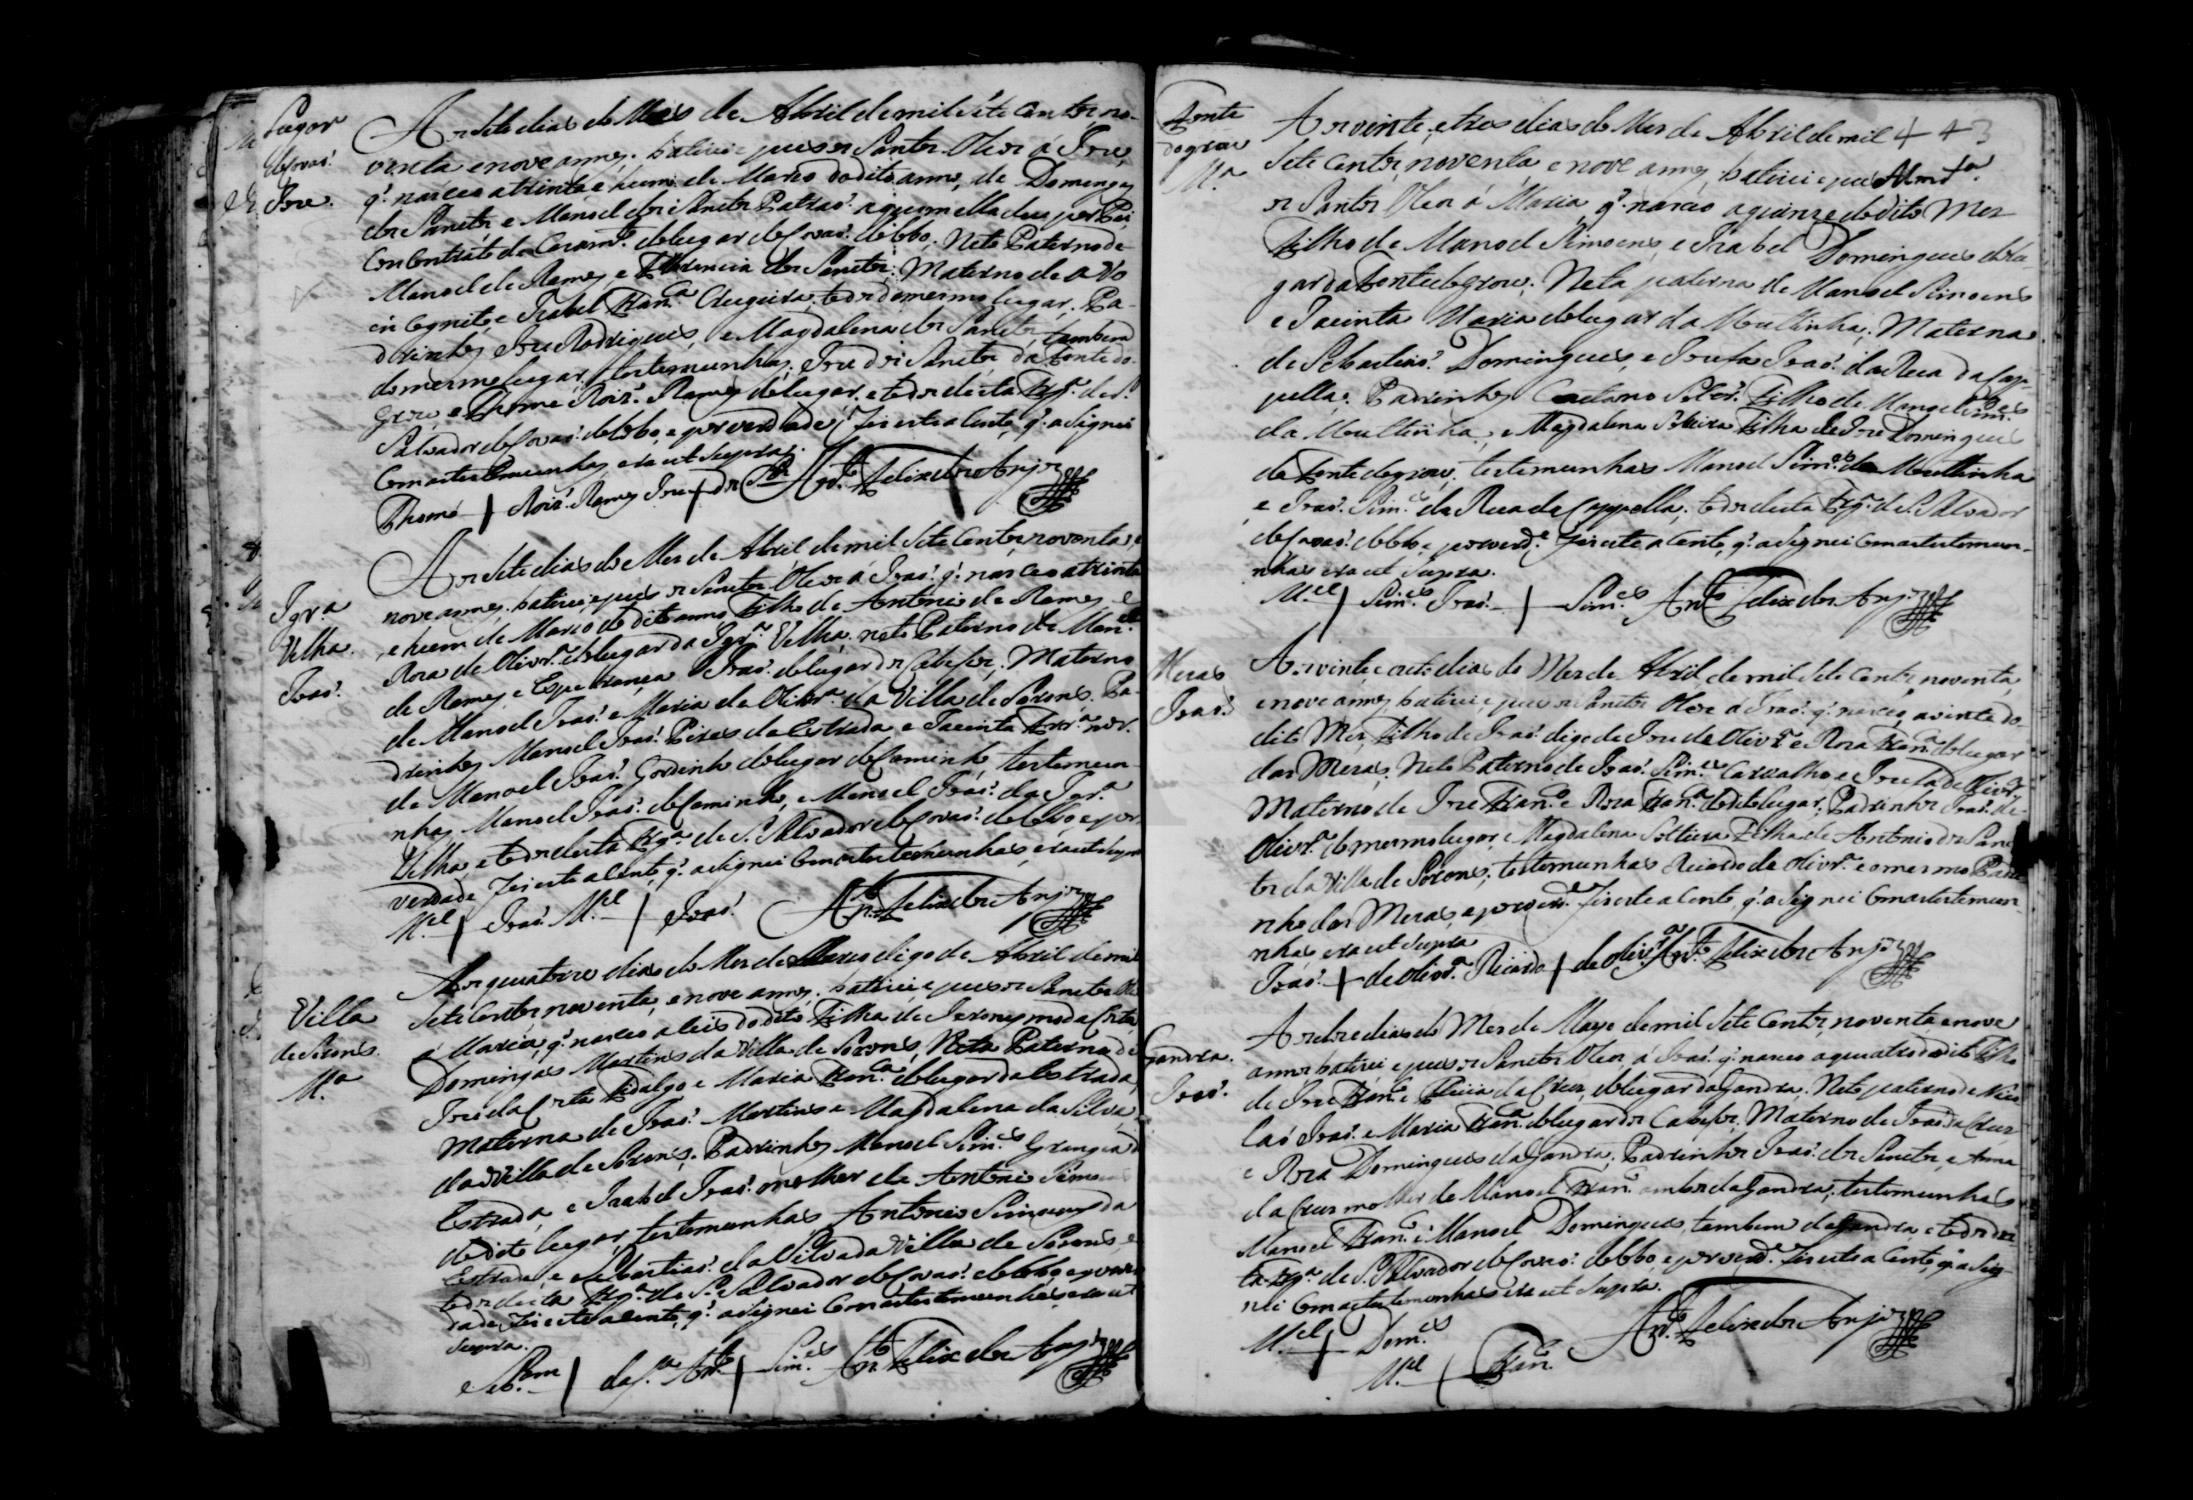 Lugar
de Covaõ.
Joze.
Aos sete dias do Mes de Abril de mil sete centos no-
venta e nove annos, batizei e puz os Santos Oleos á Joze,
q̃. nasceo a trinta e hum de Marco do dito anno, de Domingas
dos Sanctos e Manoel dos Sanctos
do lugar de Covaõ. do Lobo. Neto Paterno de
Manoel de Ramos, e Florencia dos Sanctos; Materno de avô
in Cognito, e Izabel Fran.ca todos do mesmo lugar. Pa-
drinhos Joze Rodrigues, e Magdalena dos Sanctos, tambem
do mesmo lugar, testemunhas, Joze dos Sanctos da Fonte do
Grou, e Thome Roiz. Ramos do lugar, e todos desta Frg.ª de S.
Salvador de Covaõ. do Lobo, e por verdade fiz este acento, q̃. asignei
Com as testemunhas, era ut Supra.
Thomé + Roiz. Ramos Joze + dos S.tos An.to Felix dos Anjos
Igr.ª
Velha.
Joaõ.
Aos sete dias do Mes de Abril de mil sete Centos noventa, e
nove annos, batizei, e puz os Sanctos Oleos á Joaõ. q̃. nasceo a trinta
e hum de Marco do dito anno, Filho de Antonio de Ramos e
Roza de Olivr.ª do lugar da Igr.ª Velha, neto Paterno de Man.el
de Ramos, e Esperanca Joaõ. do lugar dos Cabesos; Materno
de Manoel Joaõ. e Maria de Olivr.ª da Villa de Sorens. Pa-
drinhos Manoel Joaõ. Pires da Estrada, e Jacinta
de Manoel Joaõ. Gordinho do lugar de Caminho, testemu-
nhas Manoel Joaõ. de Caminho, e Manoel Joaõ. da Igr.ª
Velha, e todos desta Frg.ª de S. Salvador de Covaõ. do Lobo, e por
verdade fiz este acento, q̃. asignei Com as testemunhas, era ut supra
M.el + Joaõ. M.el + Joaõ. An.to Felix dos Anjos
Villa
de Sorens.
M.ª
Aos quatorze dias do Mes de Marco digo de Abril de mil
Sete Centos noventa, e nove annos, batizei e puz os Sanctos Oleos
á Maria, q̃. nasceo a seis do dito Filha de Jeronymo da Costa
Domingas Martins da Villa de Sorens, Neta Paterna de
Joze da Costa Fidalgo e Maria Fran.ca do lugar da Estrada,
Materna de Joaõ. Martins e Magdalena da Silva,
da Villa de Sorens; Padrinhos Manoel Sim.es
Estrada, e Izabel Joaõ. molher de Antonio Simoens
do dito lugar, testemunhas Antonio Simoens da
Estrada, e Sebastiaõ. da Silva da Villa de Sorens, e
todos desta Frg.ª de S. Salvador de Covaõ. do Lobo, e por ver-
dade fiz este acento, q̃. asignei Com as testemunhas, era ut
Supra.
Seb.am + da S.ª An.to + Sim.es An.to Felix dos Anjos
Fonte
do grou
M.ª
443
Aos vinte, e tres dias do Mes de Abril de mil
Sete Centos, noventa, e nove annos, batizei e puz
os Santos Oleos á Maria, q̃. nasceo a quinze do dito Mes
Filha de Manoel Simoens, e Izabel Domingues do lu-
gar da Fonte do Grou; Neta paterna de Manoel Simoens
e Jacinta Maria do lugar da Moitinha; Materna
de Sebastiaõ. Domingues, e Jozefa Joaõ. da Rua da Cap-
pella; Padrinhos Caetano Solt.ro Filho de Manoel Sim.es
da Moitinha, e Magdalena Solteira Filha de Joze Domingues
da Fonte do grou; testemunhas Manoel Sim.es da Moitinha
e Joaõ. Sim.es da Rua da Cappella; todos desta Frg.ª de S. Salvador
de Covaõ. do Lobo, e por verd.e fiz este acento, q̃. asignei Com as testemu-
nhas era ut Supra.
M.el + Sim.es Joaõ. + Sim.es An.to Felix dos Anjos
Mezas
Joaõ.
Aos vinte e oito dias do Mes de Abril de mil sete Centos noventa,
e nove annos, batizei e puz os Sanctos Oleos a Joaõ. q̃. nasceo a vinte do
dito Mes, Filho de Joaõ. digo de Joze de Olivr.ª e Roza Fran.ca do lugar
das Mezas, Neto Paterno de Joaõ. Sim.es Carvalho e Jozefa de Olivr.ª
Materno de Joze Fran.co e Roza Fran.ca do dito lugar; Padrinhos Joaõ. de
Olivr.ª do mesmo lugar, e Magdalena Solteira Filha de Antonio dos Sanc-
tos da Villa de Sorens; testemunhas Ricardo de Olivr.ª e o mesmo Padri-
nho das Mezas, e por verd.e fiz este acento, q̃. asignei Com as testemu-
nhas era ut Supra
Joaõ. + de Olivr.ª Ricardo + de Olivr.ª An.to Felix dos Anjos
Gandra.
Joaõ.
Aos doze dias do Mes de Mayo de mil sete Centos, noventa e nove
annos batizei e puz os Sanctos Oleos, á Joaõ. q̃. nasceo a quatro do dito Filho
de Joze Fran.co e Luzia da Cruz, do lugar da Gandra; Neto paterno de Nico-
laó Joaõ. e Maria Fran.ca do lugar dos Cabesos; Materno de Joaõ da Cruz
e Roza Domingues da Gandra; Padrinhos Joaõ. dos Sanctos, e Anna
da Cruz molher de Manoel Fran.co ambos da Gandra; testemunhas
Manoel Fran.co e Manoel Domingues, tambem da Gandra, e todos des-
ta Frg.ª de S. Salvador de Covaõ. do Lobo, e por verd.e fiz este acento, q̃. asig-
nei Com as testemunhas era ut Supra.
M.el + Dom.es An.to Felix dos Anjos
M.el + Fran.co